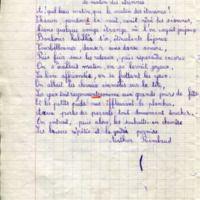 Le matin des étrennes
A ! quel beau matin, que ce matin des étrennes !
Chacun, pendant la nuit, avait rêvé des siennes,
Dans quelque songe étrange où l'on voyait joujoux
Bonbons habillés d'or, étincelants bijoux
Tourbillonner, danser une danse sonore,
Puis fuir sous les rideaux, puis reparaître encore
On s'éveillait matin, on se levait joyeux,
La lèvre affriandée, en se frottant les yeux.
On allait les cheveux emmêlés sur la tête,
Les yeux tout rayonnants comme aux grands jours de fête
Et les petits pieds nus effleurant le plancher,
Aux portes des parents tout doucement toucher,
On entrait, puis alors, les souhaits en chemise
Les baisers répétés et la gaieté permise
Arthur Rimbaud